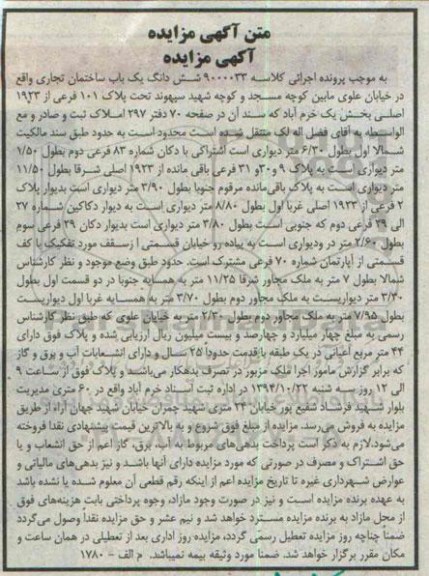 متن آگهی مزایده
آگهی مزایده
به موجب پرونده اجرائی کلاسه ۹۰۰۰۰۳۳ شش دانگ یک باب ساختمان تجاری واقع
در خیابان علوی مابین کوچه مسجد و کوچه شهید سپهوند تحت پلاک ۱۰۱ فرعی از ۱۹۲۳
اصلی بخش یک خرم آباد که سند آن در صفحه ۷۰ دفتر ۲۹۷ املاک ثبت و صادر و مع
الواسطه به آقای فضل اله لک منتقل شده است محدود است به حدود طبق سند مالکیت
شمالا اول بطول ۶/۳۰ متر دیواری است اشتراکی با دکان شماره ۸۳ فرعی دوم بطول ۱/۵۰
متر دیواری است به پلاک ۹ و ۳۰و ۳۱ فرعی باقی مانده از ۱۹۲۳ اصلی شرقا بطول ۱۱/۵۰
متر دیواری است به پلاک باقی‌مانده مرقوم جنوبا بطول ۳/۹۰ متر دیواری است بدیوار پلاک
۲ فرعی از ۱۹۲۳ اصلی غربا اول بطول ۸/۸۰ متر دیواری است به دیوار دکاکین شماره ۲۷
الی ۲۹ فرعی دوم که جنوبی است بطول ۳/۸۰ متر دیواری است بدیوار دکان ۲۹ فرعی سوم
بطول ۲/۶۰ متر در ودیواری است به پیاده رو خیابان قسمتی از سقف مورد تفکیک با کف
قسمتی از آپارتمان شماره ۷۰ فرعی مشترک است. حدود طبق وضع موجود و نظر کارشناس
شمالا بطول ۷ متر به ملک مجاور شرقا ۱۱/۲۵ متر به همسایه جنوبا در دو قسمت اول بطول
۳/۴۰ متر دیواریست به ملک مجاور دوم بطول ۳/۷۰ متر به همسایه غربا اول دیواریست
بطول ۷/۹۵ متر به ملک مجاور دوم بطول ۲/۳۰ متر به خیابان علوی که طبق نظر کارشناس
رسمی به مبلغ چهار میلیارد و چهارصد و بیست میلیون ریال ارزیابی شده و پلاک فوق دارای
۴۴ متر مربع اعیانی در یک طبقه با قدمت حدودا ۲۵ سال و دارای انشعابات آب و برق و گاز
که برابر گزارش مامور اجرا ملک مزبور در تصرف بدهکار می‌باشد و پلاک فوق از ساعت ۹
الی ۱۲ روز سه شنبه ۱۳۹۴/۱۰/۲۲ در اداره ثبت اسناد خرم آباد واقع در ۶۰ متری مدیریت
بلوار شهید فرشاد شفیع پور خیابان ۲۴ متری شهید چمران خیابان شهید جهان آراء از طریق
مزایده به فروش می‌رسد. مزایده از مبلغ فوق شروع و به بالاترین قیمت پیشنهادی نقدا فروخته
می‌شود،لازم به ذکر است پرداخت بدهی‌های مربوط به آب، برق، گاز اعم از حق انشعاب و یا
حق اشتراک و مصرف در صورتی که مورد مزایده دارای آنها باشد و نیز بدهی‌های مالیاتی و
عوارض شهرداری غیره تا تاریخ مزایده اعم از اینکه رقم قطعی آن معلوم شده یا نشده باشد
به عهده برنده مزایده است و نیز در صورت وجود مازاد، وجوه پرداختی بابت هزینه‌های فوق
از محل مازاد به برنده مزایده مسترد خواهد شد و نیم عشر و حق مزایده نقدا وصول می‌گردد
ضمنا چنانچه روز مزایده تعطیل رسمی گردد، مزایده روز اداری بعد از تعطیلی در همان ساعت و
مکان مقرر برگزار خواهد شد. ضمنا مورد وثیقه بیمه نمیباشد. م الف - ۱۷۸۰